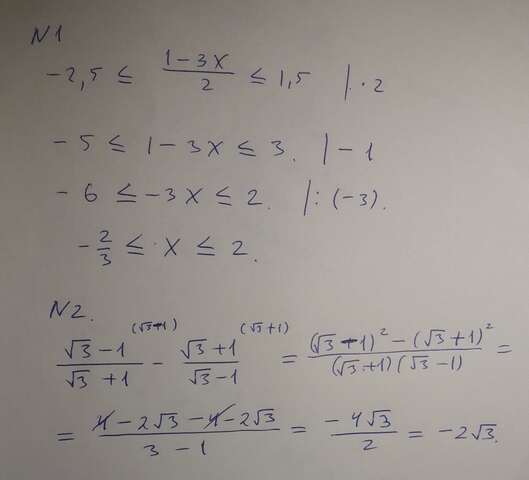 N1
-2,5 ≤ \frac{1-3x}{2} ≤ 1,5 | · 2
-5 ≤ 1-3x ≤ 3. | -1
-6 ≤ -3x ≤ 2. | : (-3).
-\frac{2}{3} ≤ x ≤ 2.
N2.
\frac{√3-1}{√3+1}^{(√3+1)} - \frac{√3+1}{√3-1}^{(√3+1)} = \frac{(√3-1)^2-(√3+1)^2}{(√3+1)(√3-1)} =
= \frac{4-2√3-4-2√3}{3-1} = \frac{-4√3}{2} = -2√3.